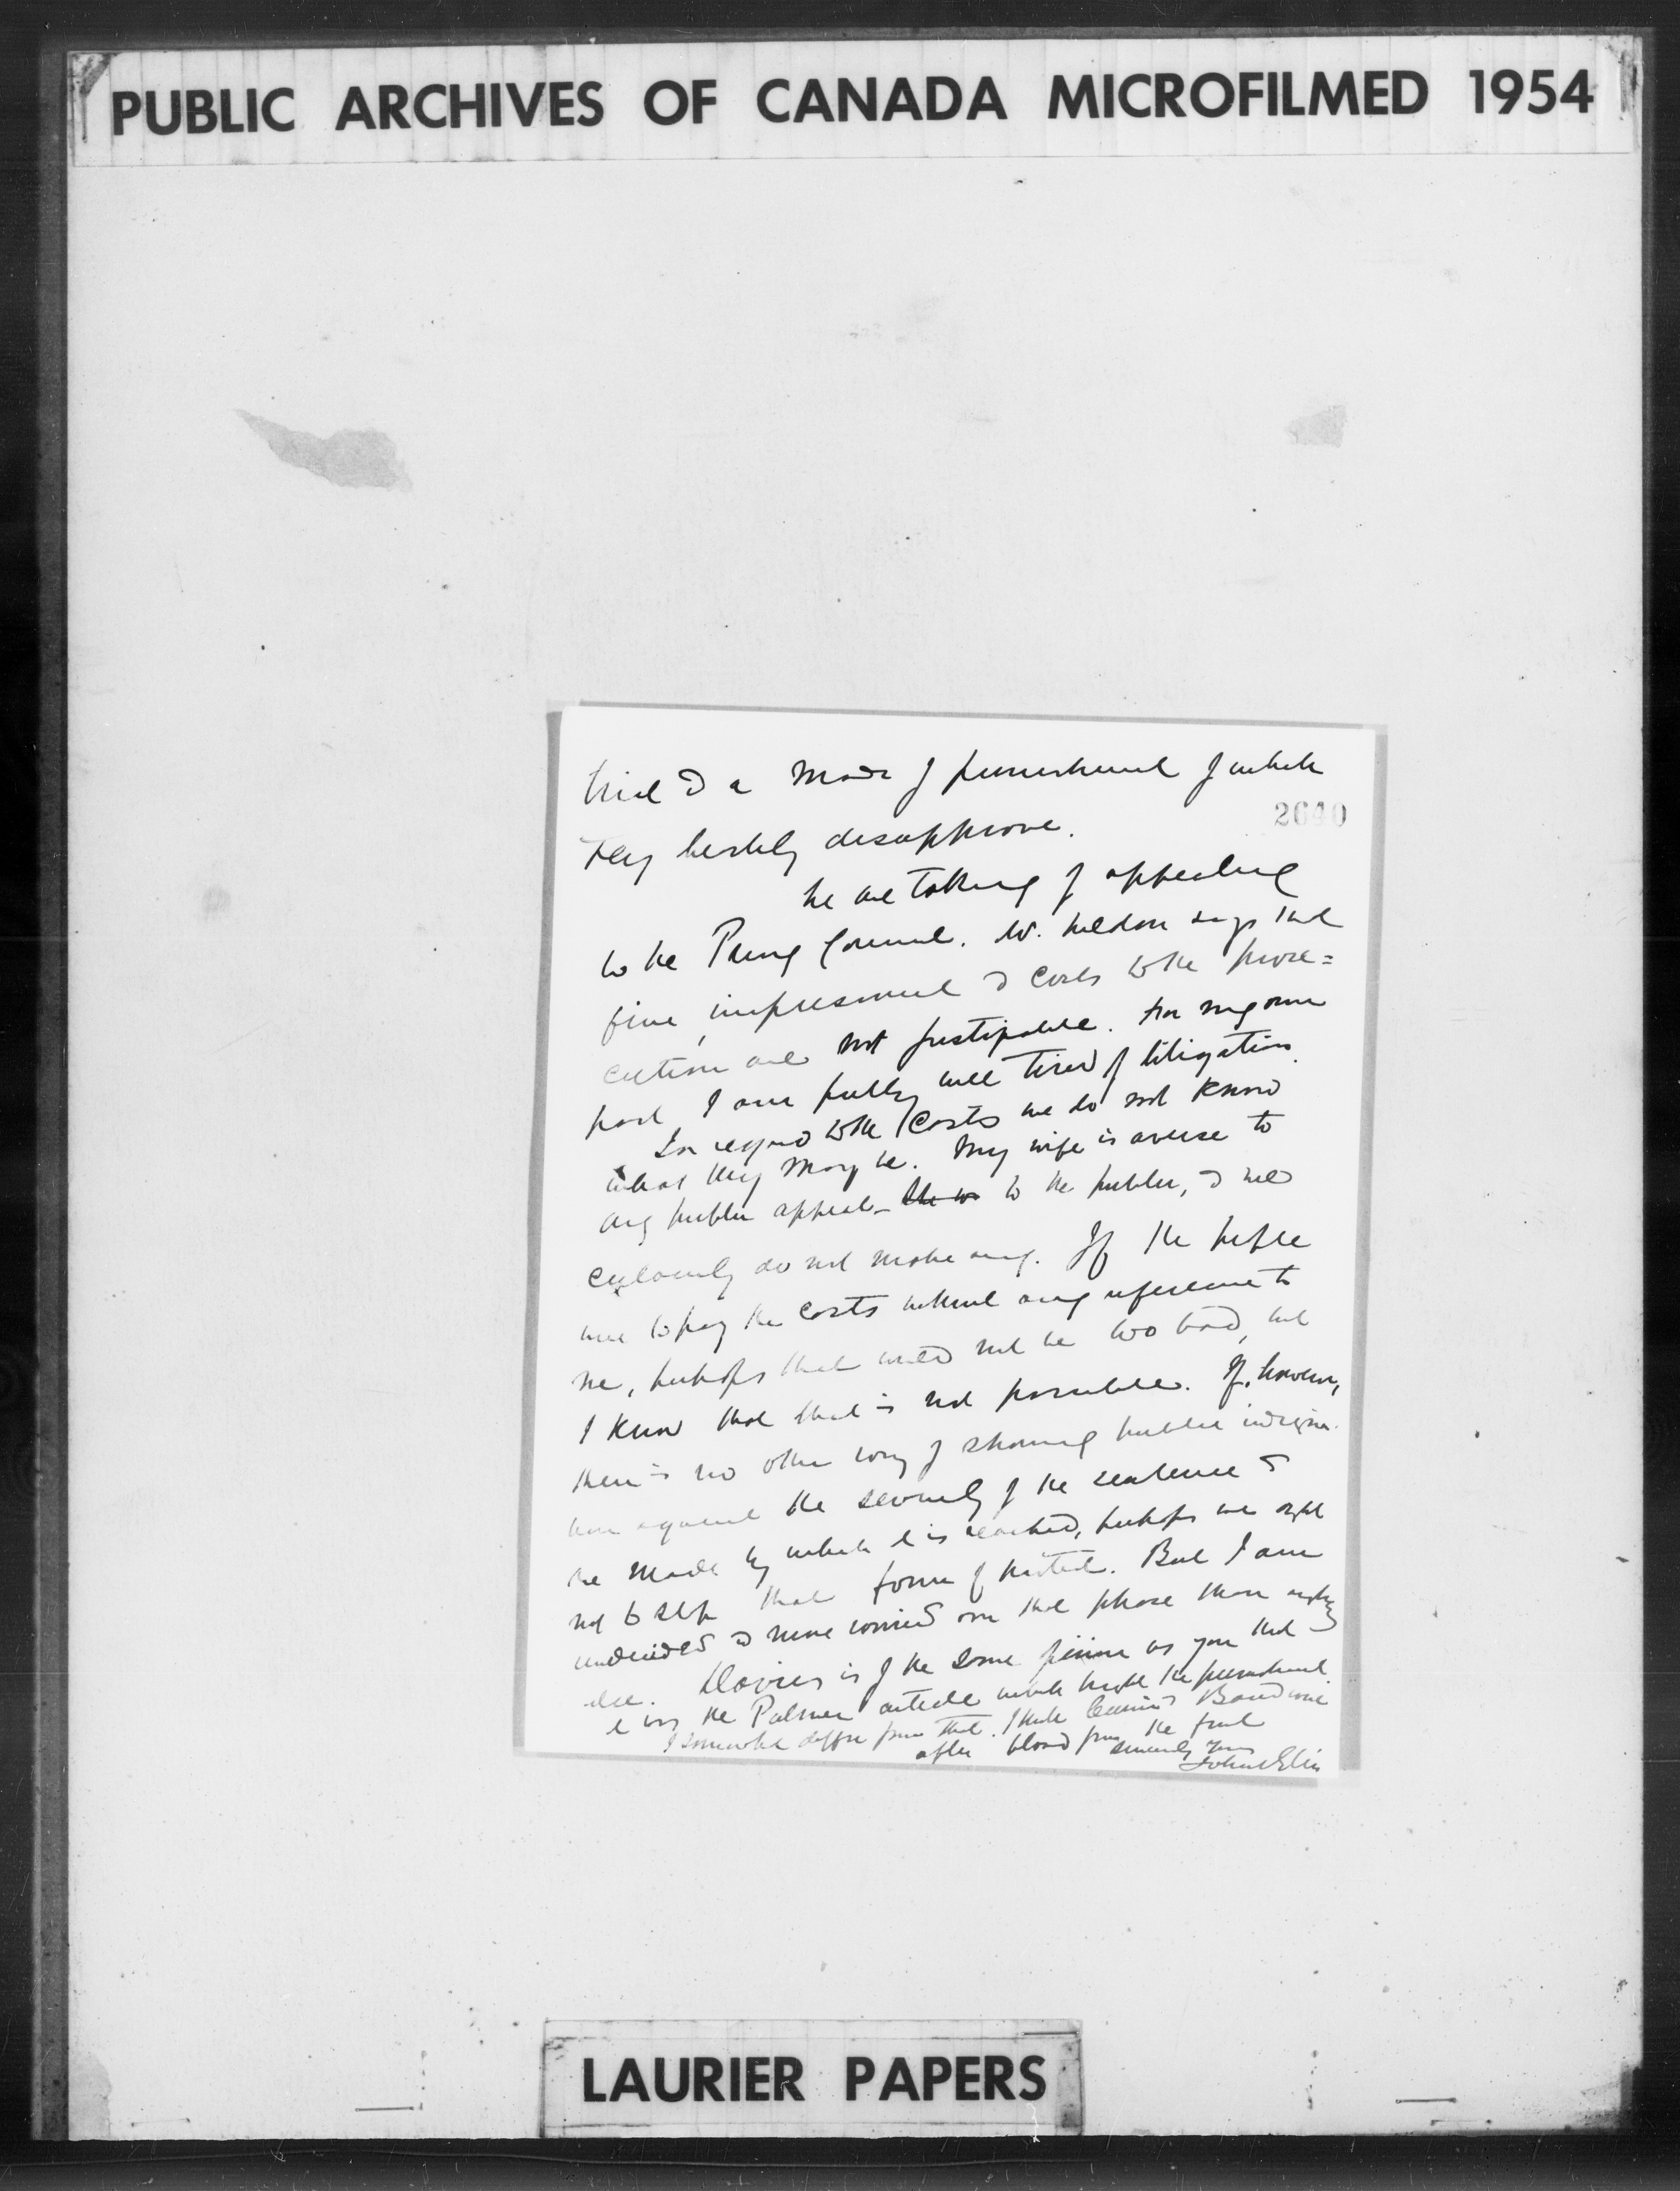 PUBLIC ARCHIVES OF CANADA MICROFILMED 1954
trial & a mode of punishment of which
2640
they heartily disapprove.
We are talking of appealing
to the Privy Council. W. Weldon says that
fine, imprisonment & costs to the prose=
cution are not justifiable. For my own
part I am fully well tired of litigation.
In regard to the costs we do not know
what they may be. My wife is averse to
any public appeal to the public, & we
certainly do not make any. If the people
were to pay the costs without any reference to
me, perhaps that would not be too bad, but
I know that that is not possible. If, however,
there is no other way of showing public indigna-
tion against the severity of the sentence &
the mode by which it is reached, perhaps we ought
not to stop that form of protest. But I am
undecided & more worried over that phase than anything
else. Davies is of the same opinion as you that
it was the Palmer article which brought the punishment
I somewhat differ from that. I think
after blood from the first
Sincerely yours
John V Ellis
LAURIER PAPERS